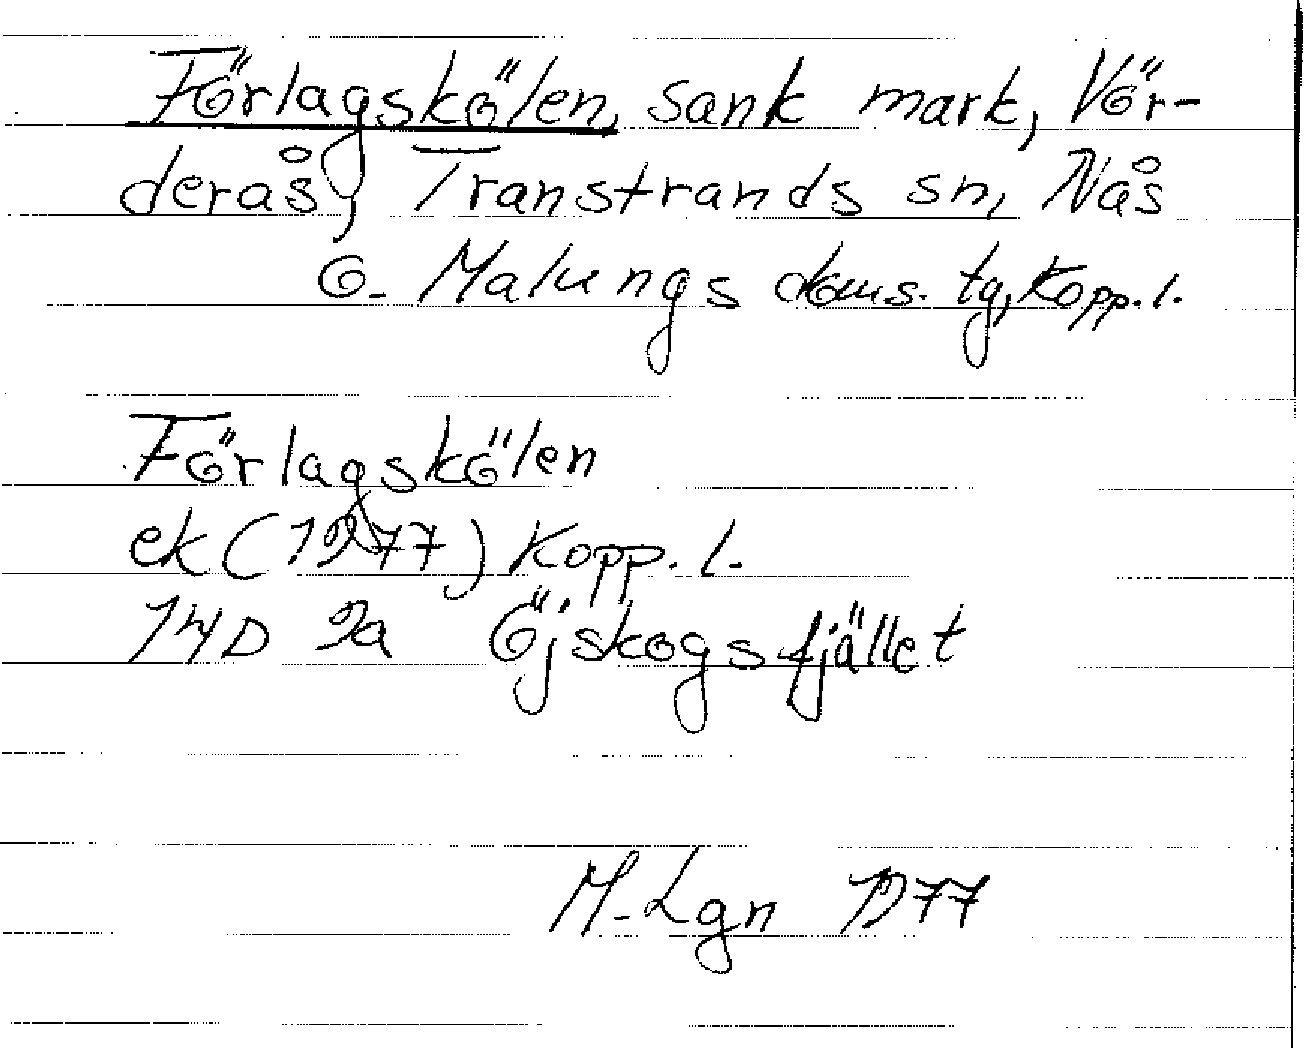 Förlagskölen, sank mark, Vör-
derås, Transtrands sn, Nås
o. Malungs doms. tg, Kopp. l.
Förlagskölen
ek (1977) Kopp. l.
14D 2a Öjskogsfjället
M. Lgn 1977